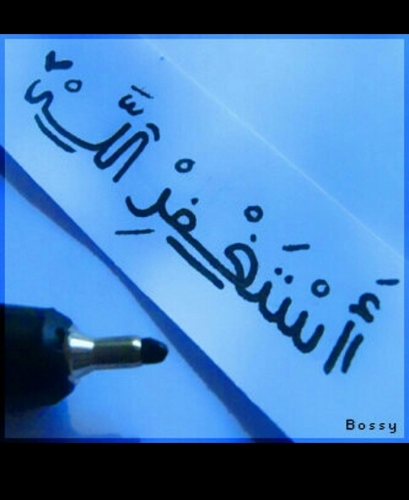 أَسْتَغْفِر اللَّهْ
Bossy